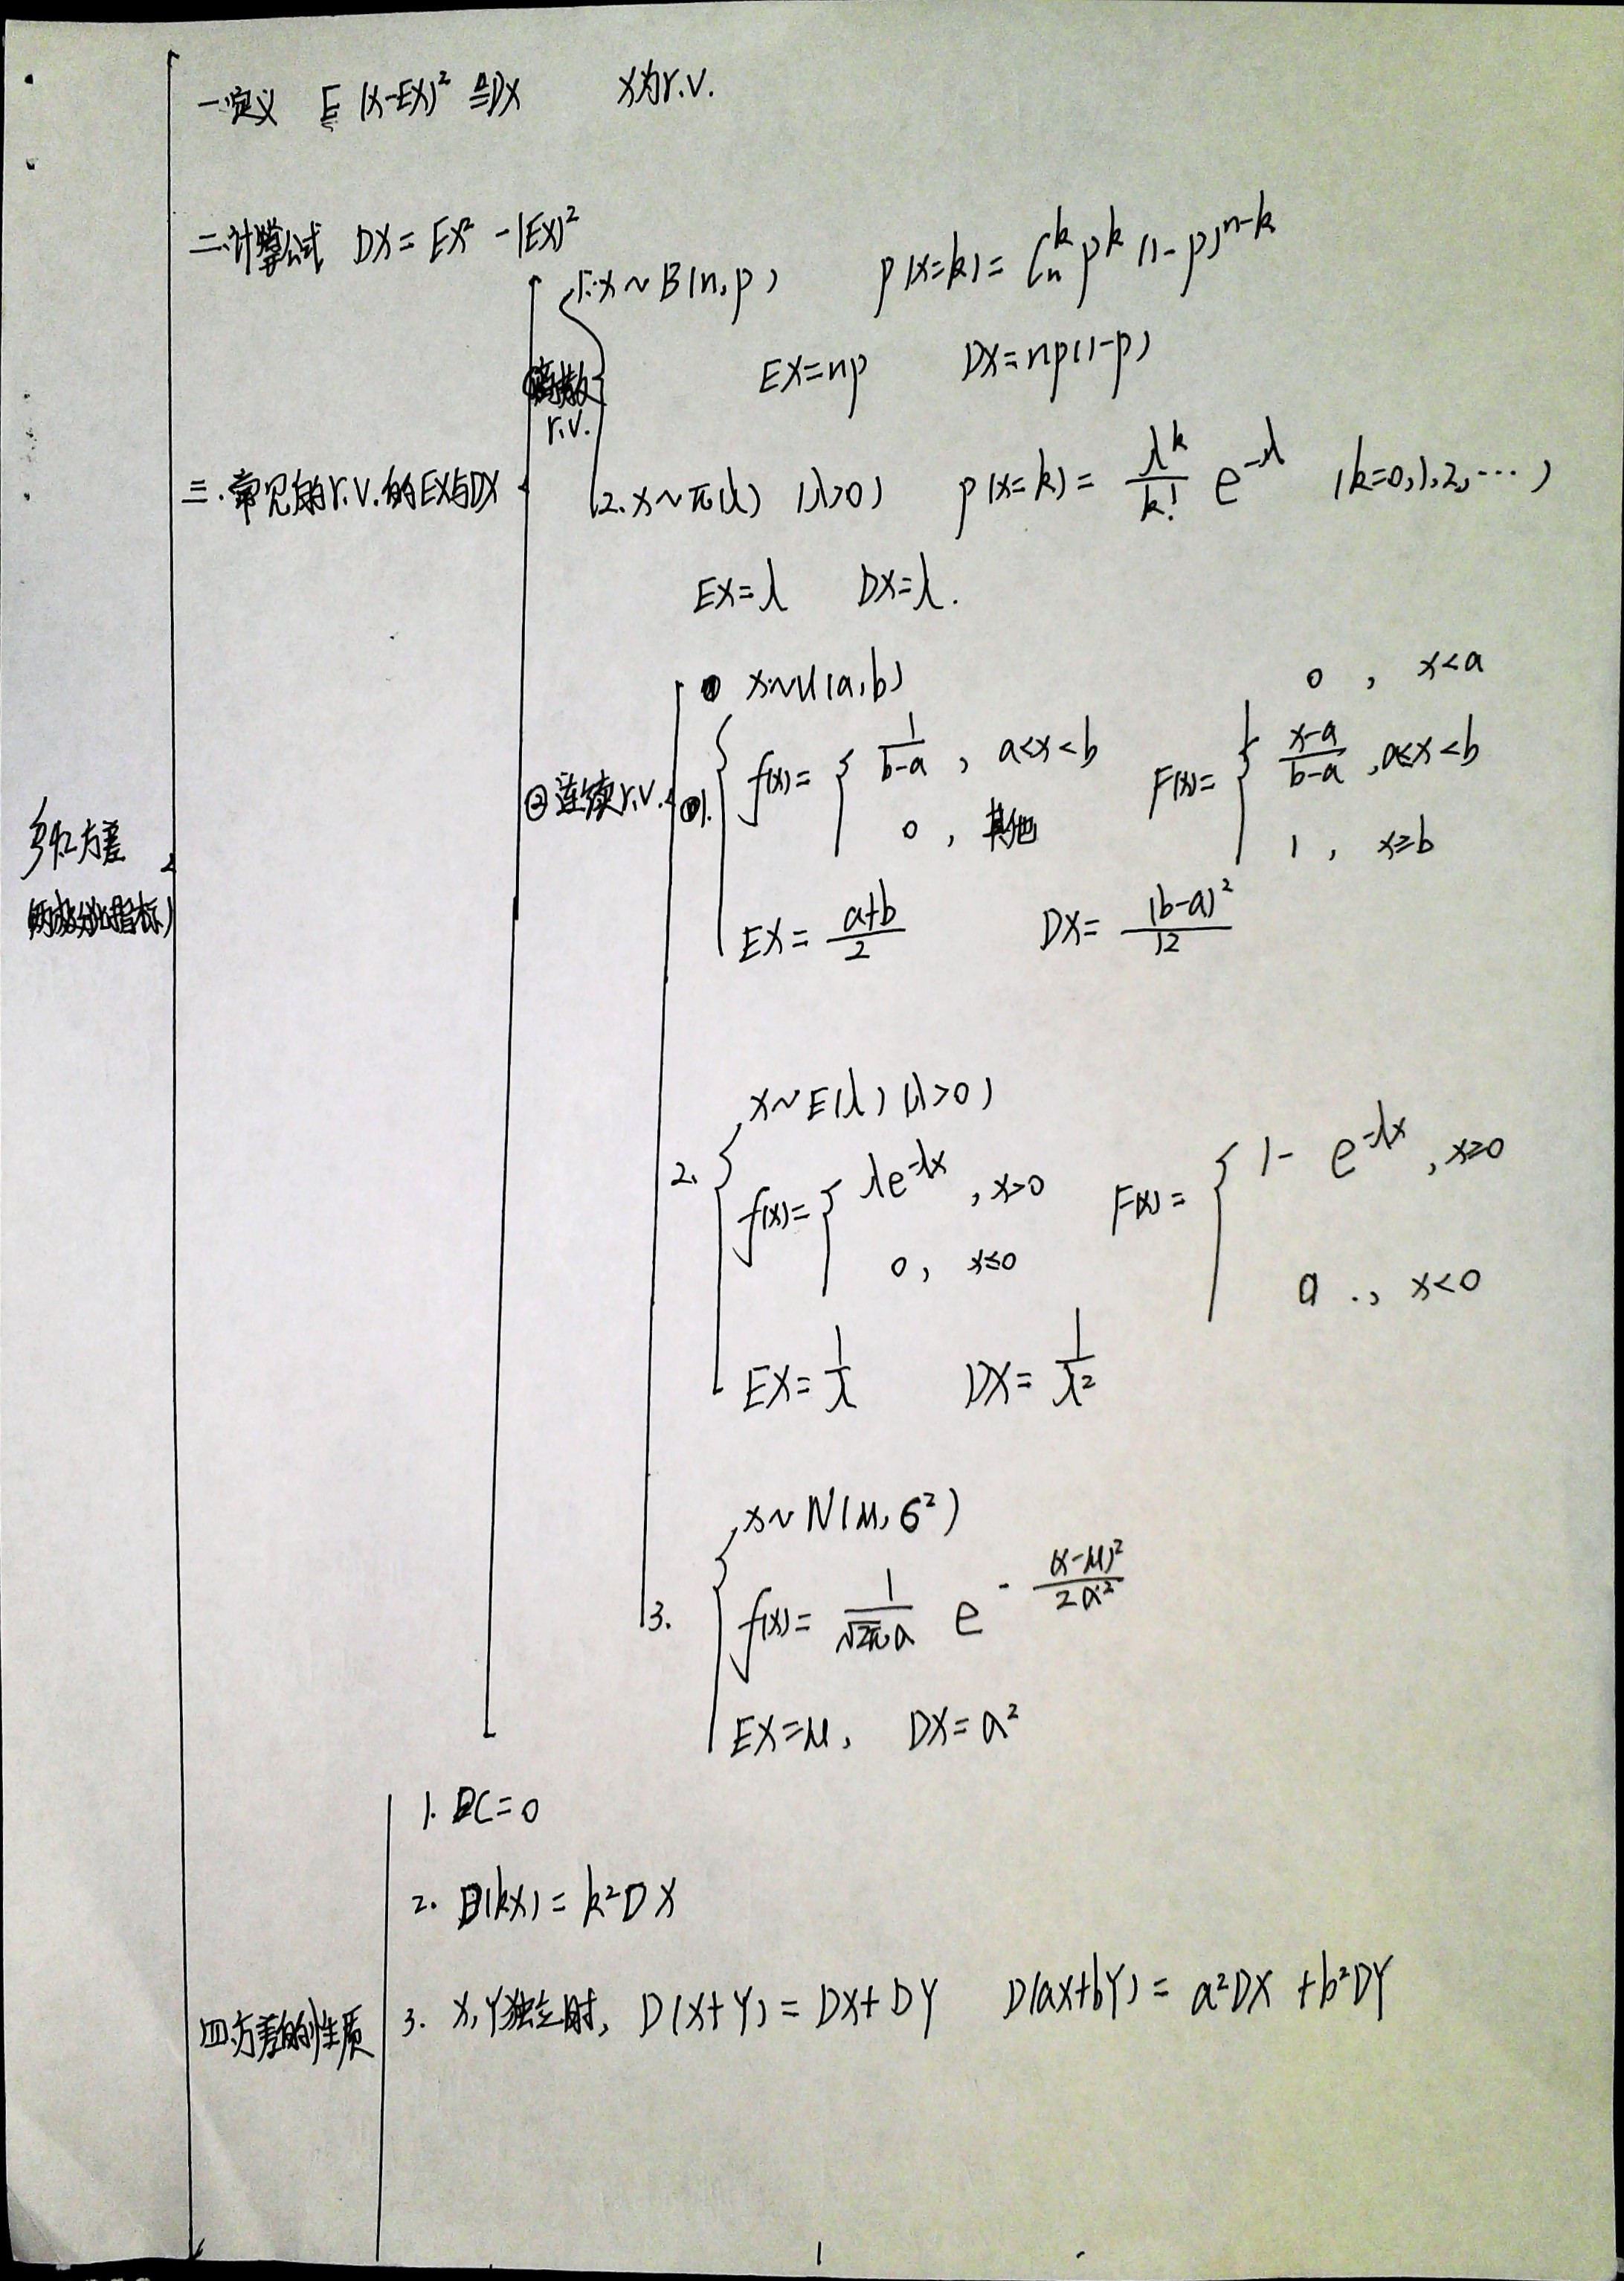 一.定义 E(X-EX)² ≜DX X为r.v.
二.计算公式 DX=EX²-(EX)²
三.常见的r.v.的EX与DX
离散r.v.
1.X~B(n,p) P(X=k)=Cₙᵏpᵏ(1-p)ⁿ⁻ᵏ
EX=np DX=np(1-p)
2.X~π(λ) (λ>0) P(X=k)=λᵏ/k! e^(-λ) (k=0,1,2,…)
EX=λ DX=λ.
②连续r.v.
1.
X~U(a,b)
f(x)={ 1/(b-a), a<x<b
0, 其他
F(x)={ 0, x<a
(x-a)/(b-a), a≤x<b
1, x≥b
EX=(a+b)/2 DX=(b-a)²/12
方差
2.
X~E(λ)(λ>0)
f(x)={ λe^(-λx), x>0
0, x≤0
F(x)={ 1-e^(-λx), x≥0
0, x<0
EX=1/λ DX=1/λ²
3.
X~N(μ,σ²)
f(x)=1/(√2π σ) e^(-(x-μ)²/2σ²)
EX=μ, DX=σ²
四.方差的性质
1. DC=0
2. D(kX)=k²DX
3. X,Y独立时, D(X+Y)=DX+DY D(aX+bY)=a²DX+b²DY